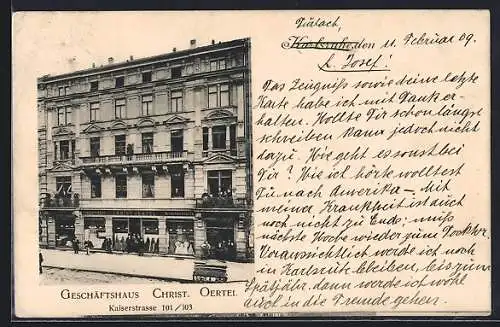 Durlach,
Karlsruhe, den 11. Februar 09.
L. Josef!
Das Zeugniß sowie deine letzte
Karte habe ich mit Dank er-
halten. Wollte Dir schon längst
schreiben kam jedoch nicht
dazu. Wie geht es sonst bei
Dir? Wie ich hörte wolltest
Du nach Amerika. – Mit
meiner Krankheit ist auch
noch nicht zu Ende, muß
nächste Woche wieder zum Doktor.
Voraussichtlich werde ich noch
in Karlsruhe bleiben, bis zum
Spätjahr, dann werde ich wohl
auch in die Fremde gehen.
GESCHÄFTSHAUS CHRIST. OERTEL
Kaiserstrasse 101/103